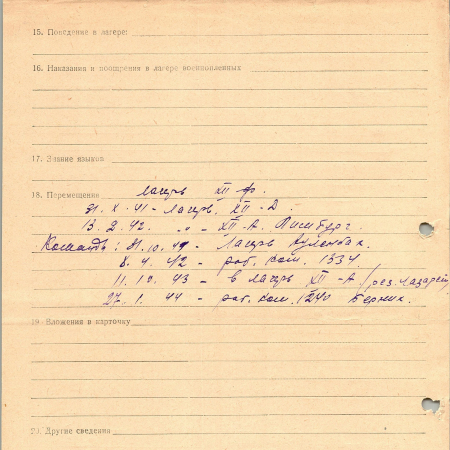 15. Поведение в лагере:
16. Наказания и поощрения в лагере военнопленных
17. Знание языков
18. Перемещения лагерь XII ф.
31. X. 41 - лагерь XII - Д.
13. 2. 42. " - " XII - А. Лимбург.
Команды: 31. 10. 41 - Лагерь
8. 4. 42 - раб. ком. 1334
11. 10. 43 - в лагерь XII - А /рез. лазарет/
27. 1. 44 - раб. ком. 1240
19. Вложения в карточку
20. Другие сведения